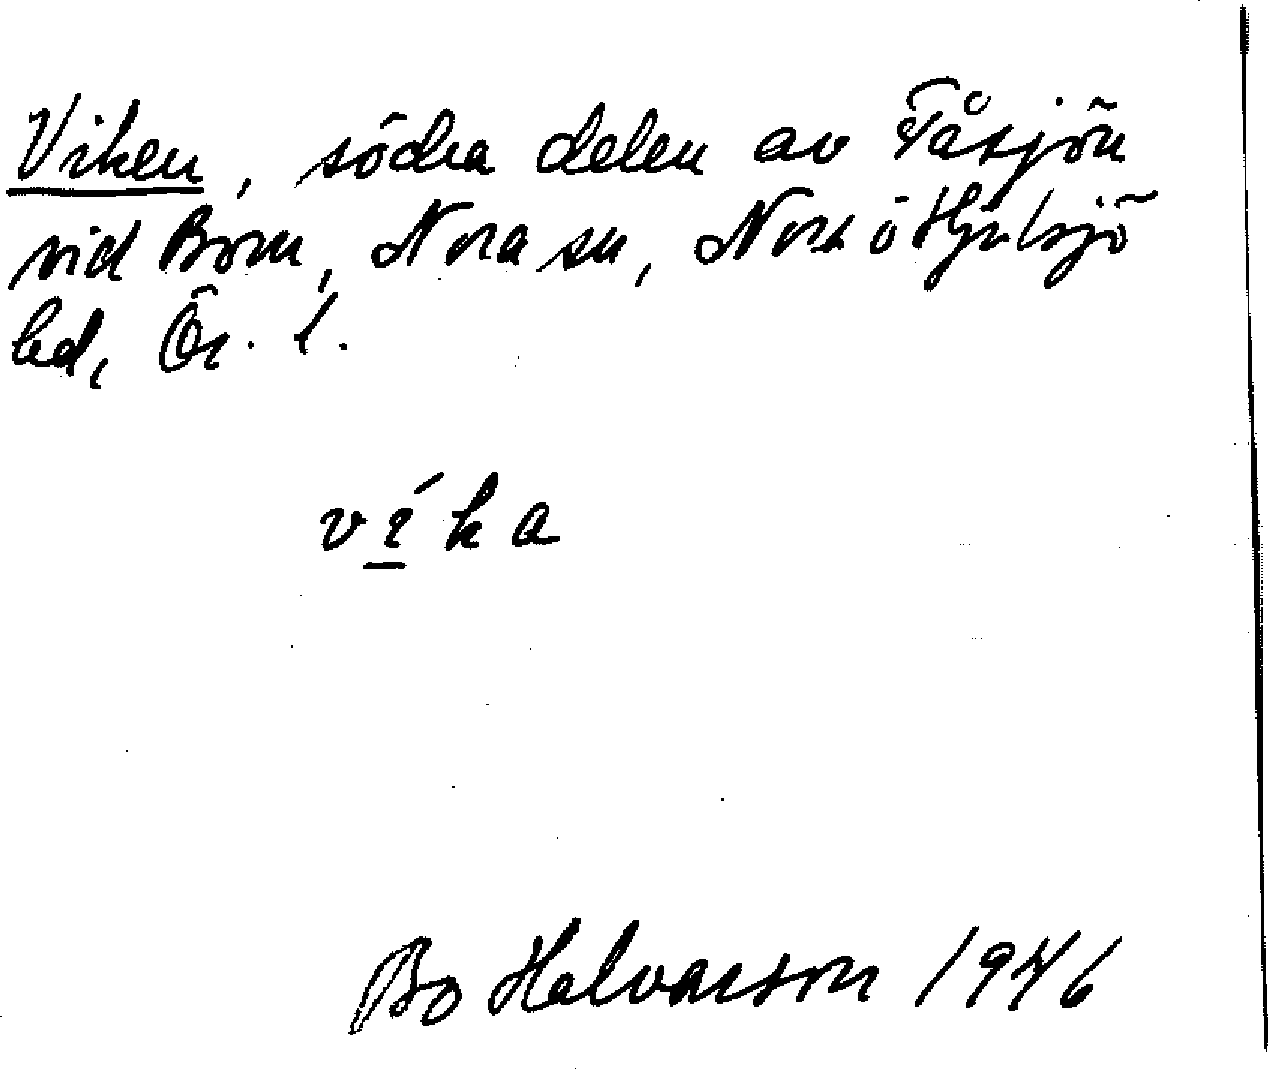 Viken, södra delen av Fåsjön
vid Born, Nora sn, Nora ö Hjulsjö
bd, Ör. l.
víka
Bo Halvarson 1946